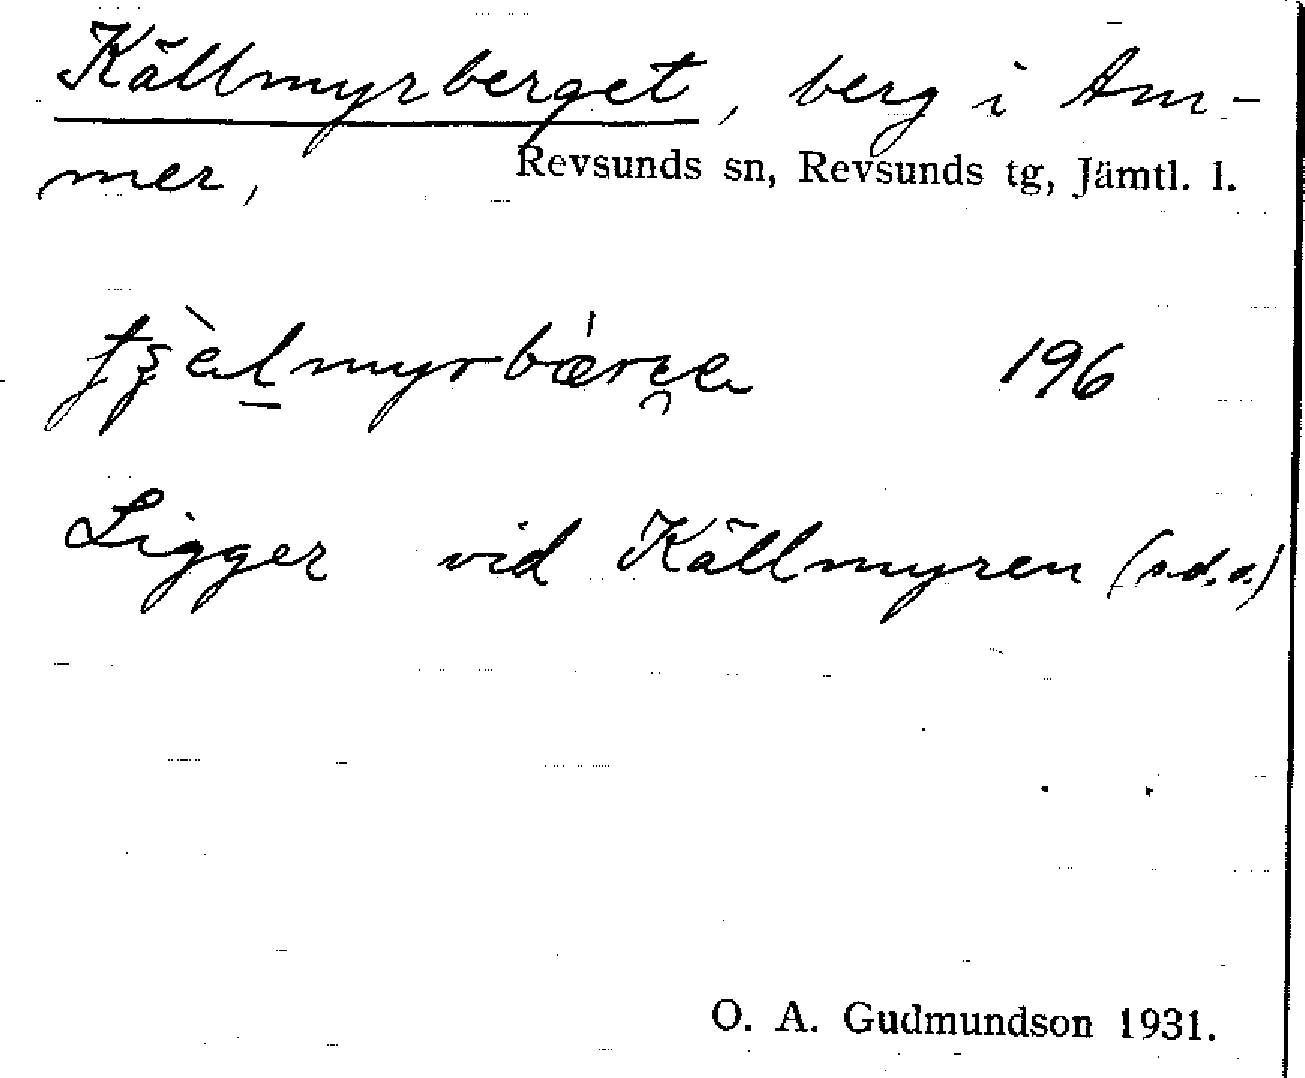 Källmyrberget, berg i Am-
mer, Revsunds sn, Revsunds tg, Jämtl. l.
196
Ligger vid Källmyren (s.d.o.)
O. A. Gudmundson 1931.